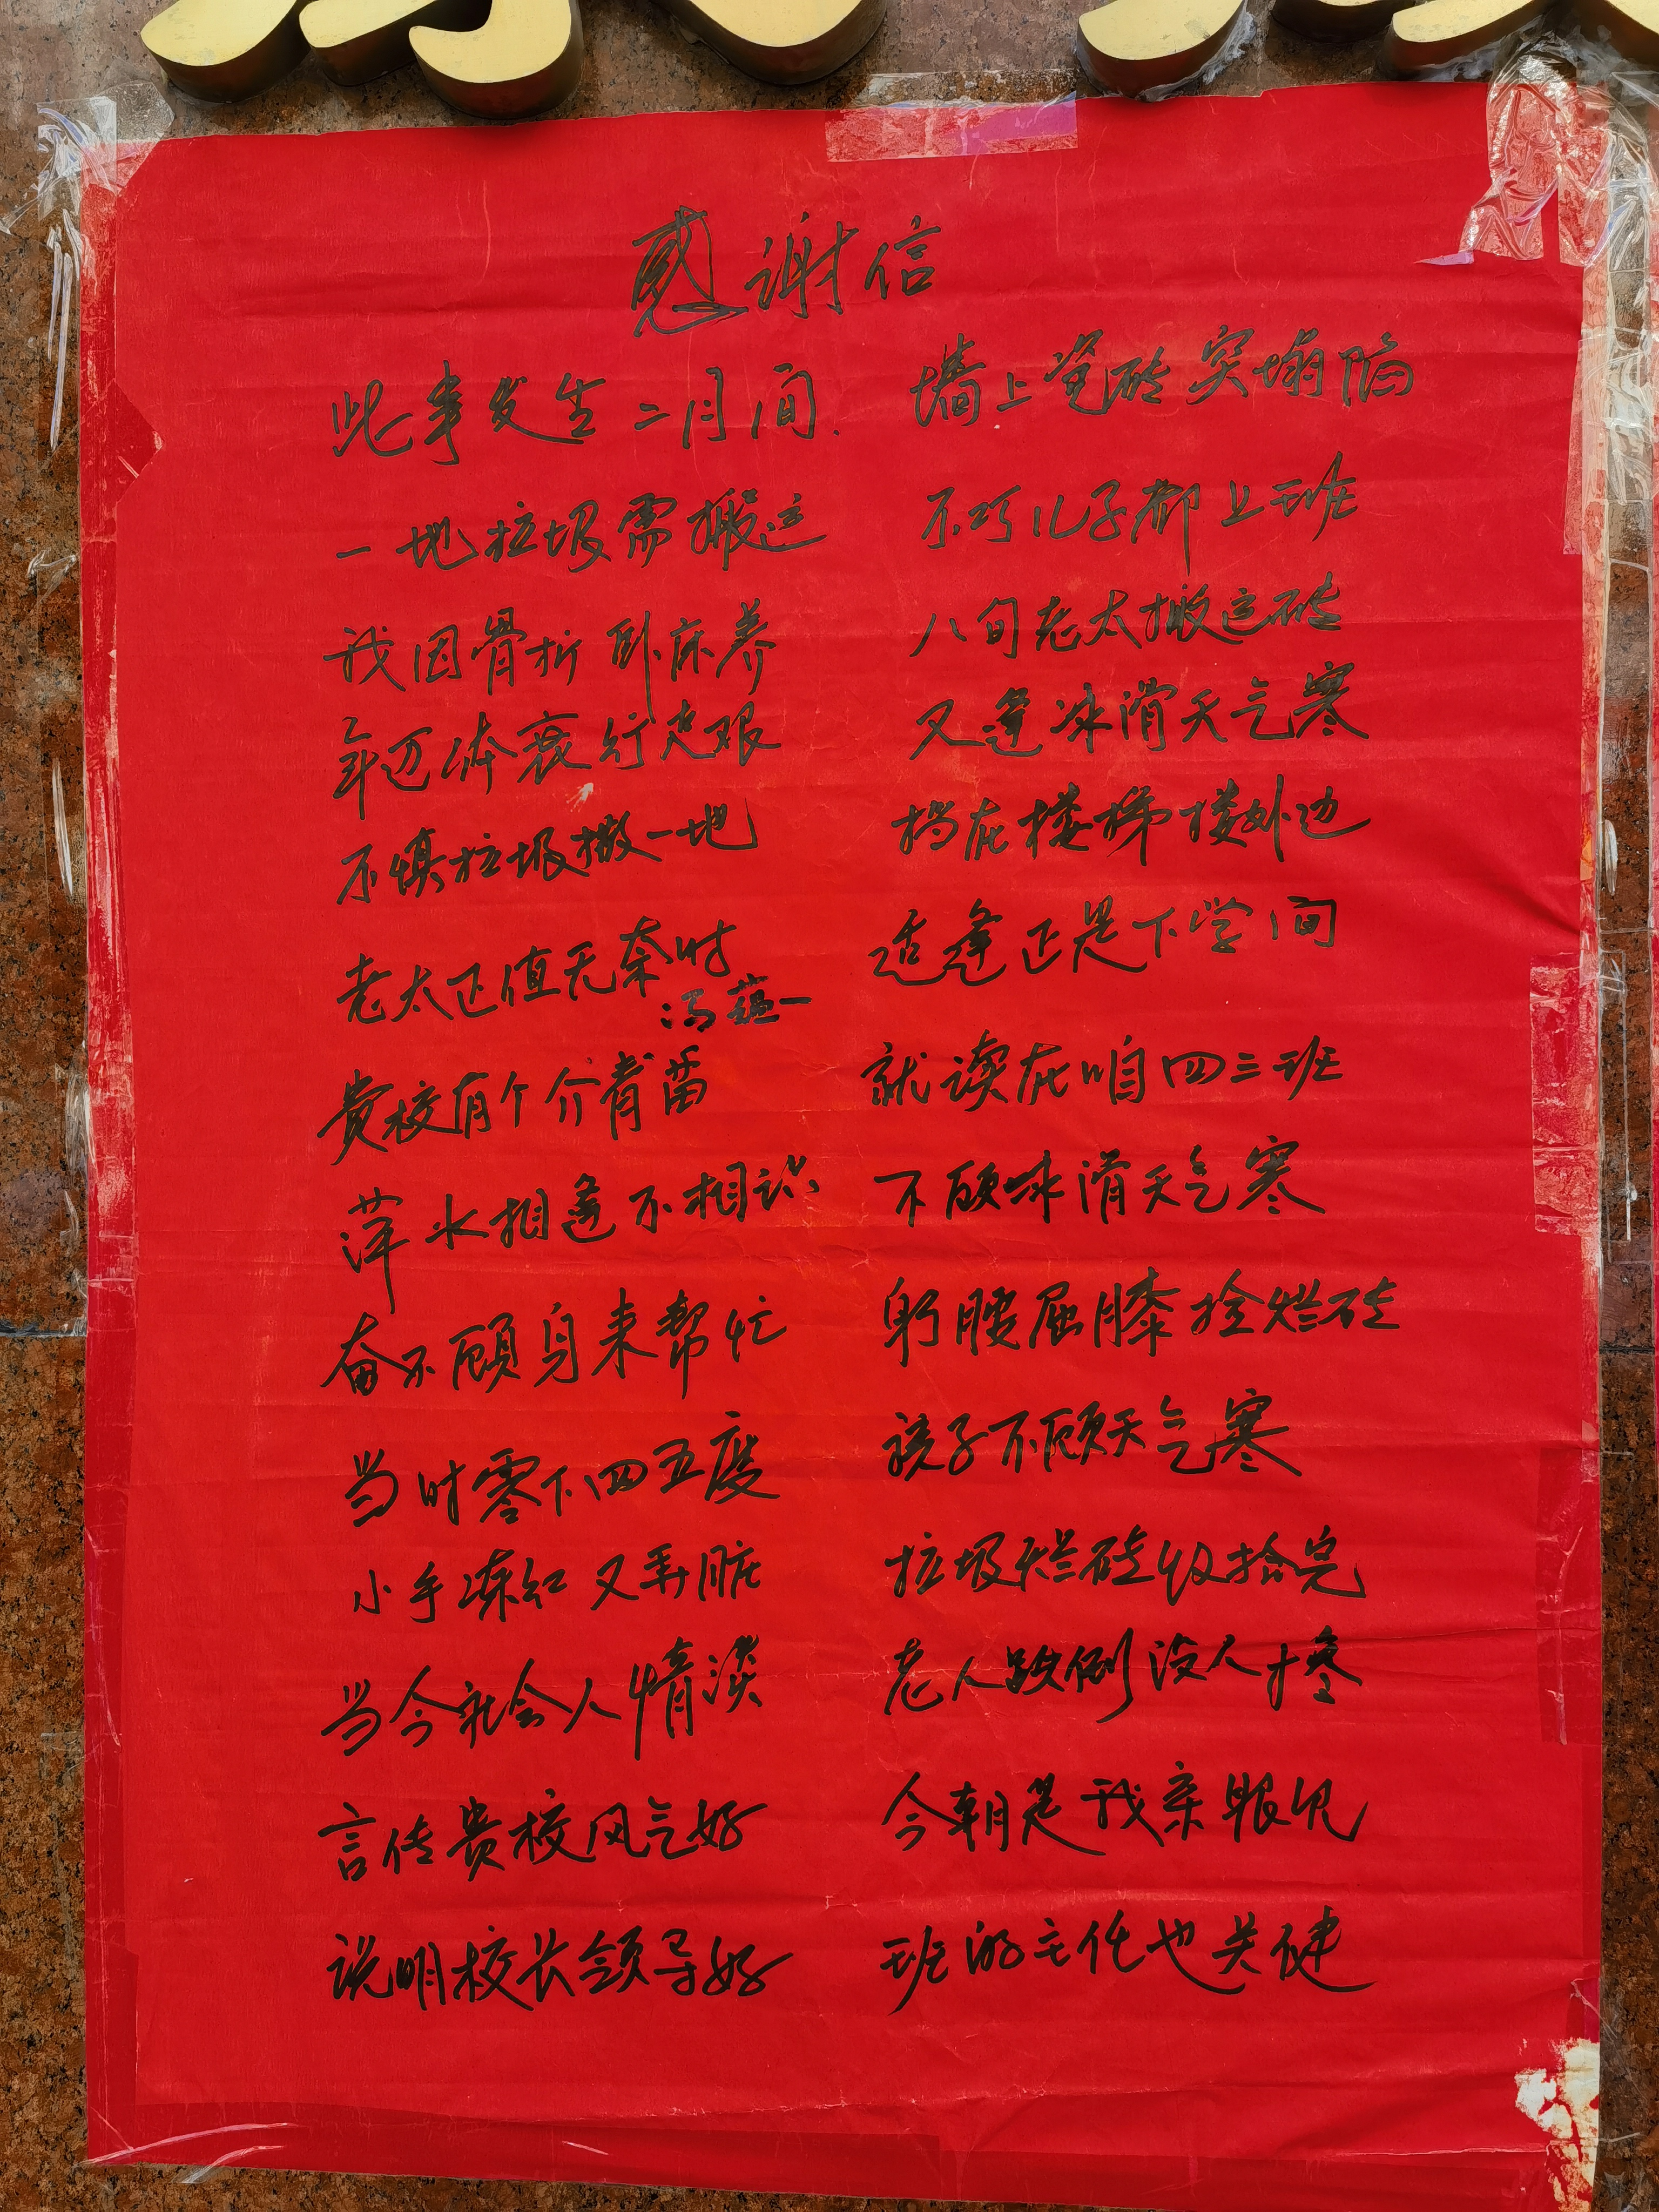 感谢信
此事发生二月间. 墙上瓷砖突塌陷
一地垃圾需搬运 不巧儿子都上班
我因骨折卧床养 八旬老太搬运砖
年迈体衰行走艰 又逢冰滑天气寒
不慎垃圾撒一地 挡在楼梯楼外边
老太正值无奈时 适逢正是下学间
冯蕴一
贵校有个介青苗 就读在咱四三班
萍水相逢不相识 不顾冰滑天气寒
奋不顾身来帮忙 躬腰屈膝捡烂砖
当时零下四五度 孩子不顾天气寒
小手冻红又弄脏 垃圾烂砖收拾完
当今社会人情淡 老人跌倒没人搀
言传贵校风气好 今朝是我亲眼见
说明校长领导好 班的主任也关健